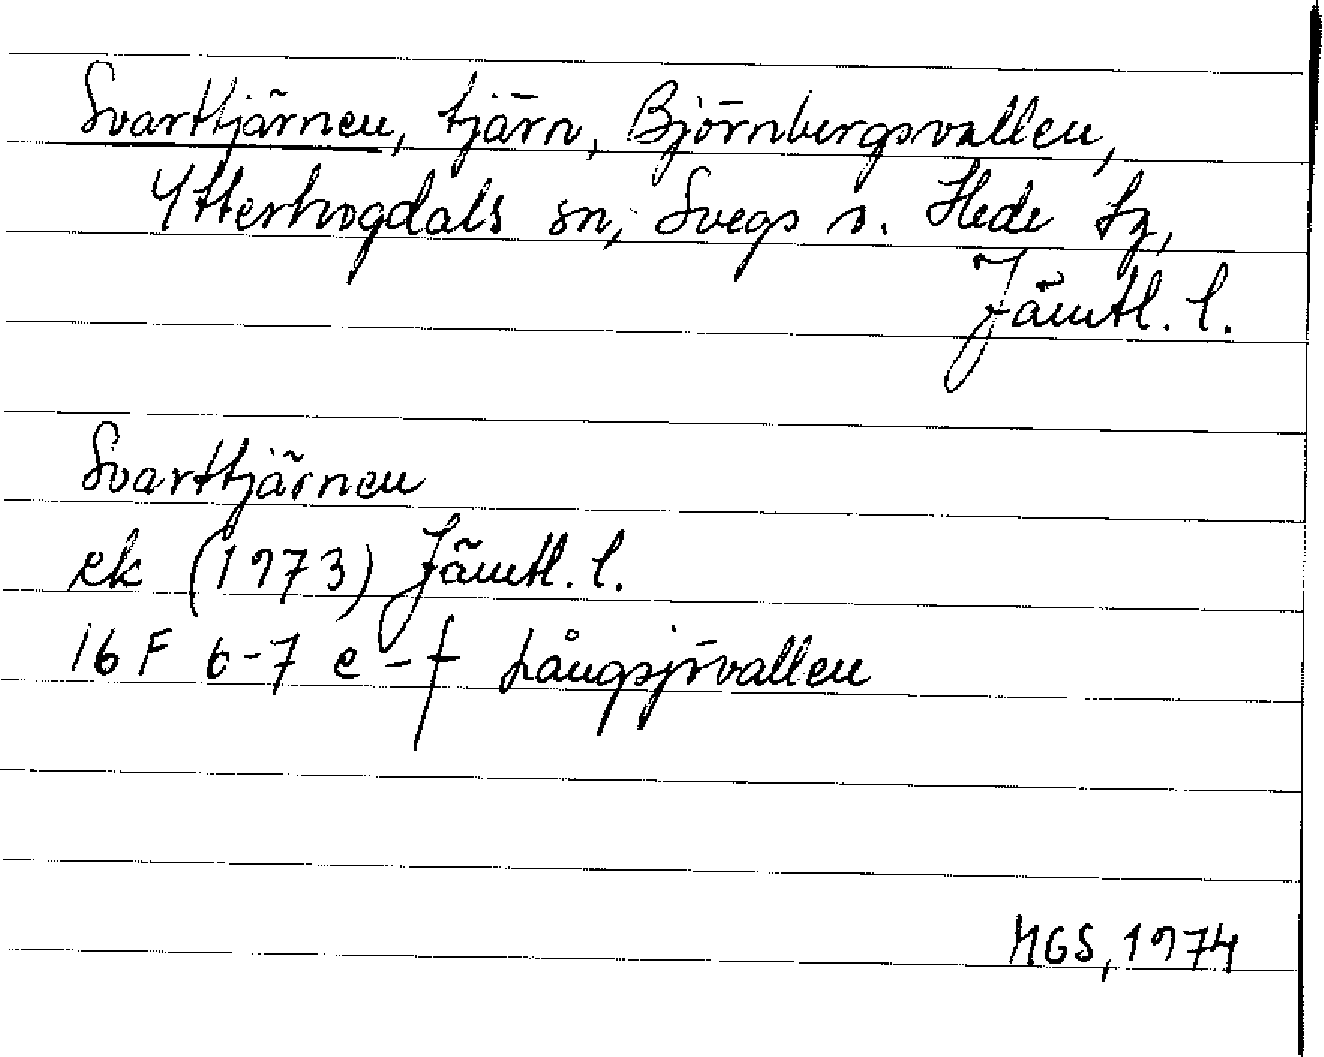 Svarttjärnen, tjärn, Björnbergsvallen,
Ytterhogdals sn, Svegs o. Hede tg,
Jämtl. l.
Svarttjärnen
ek (1973) Jämtl. l.
16 F 6-7 e-f Långsjövallen
MGS, 1974